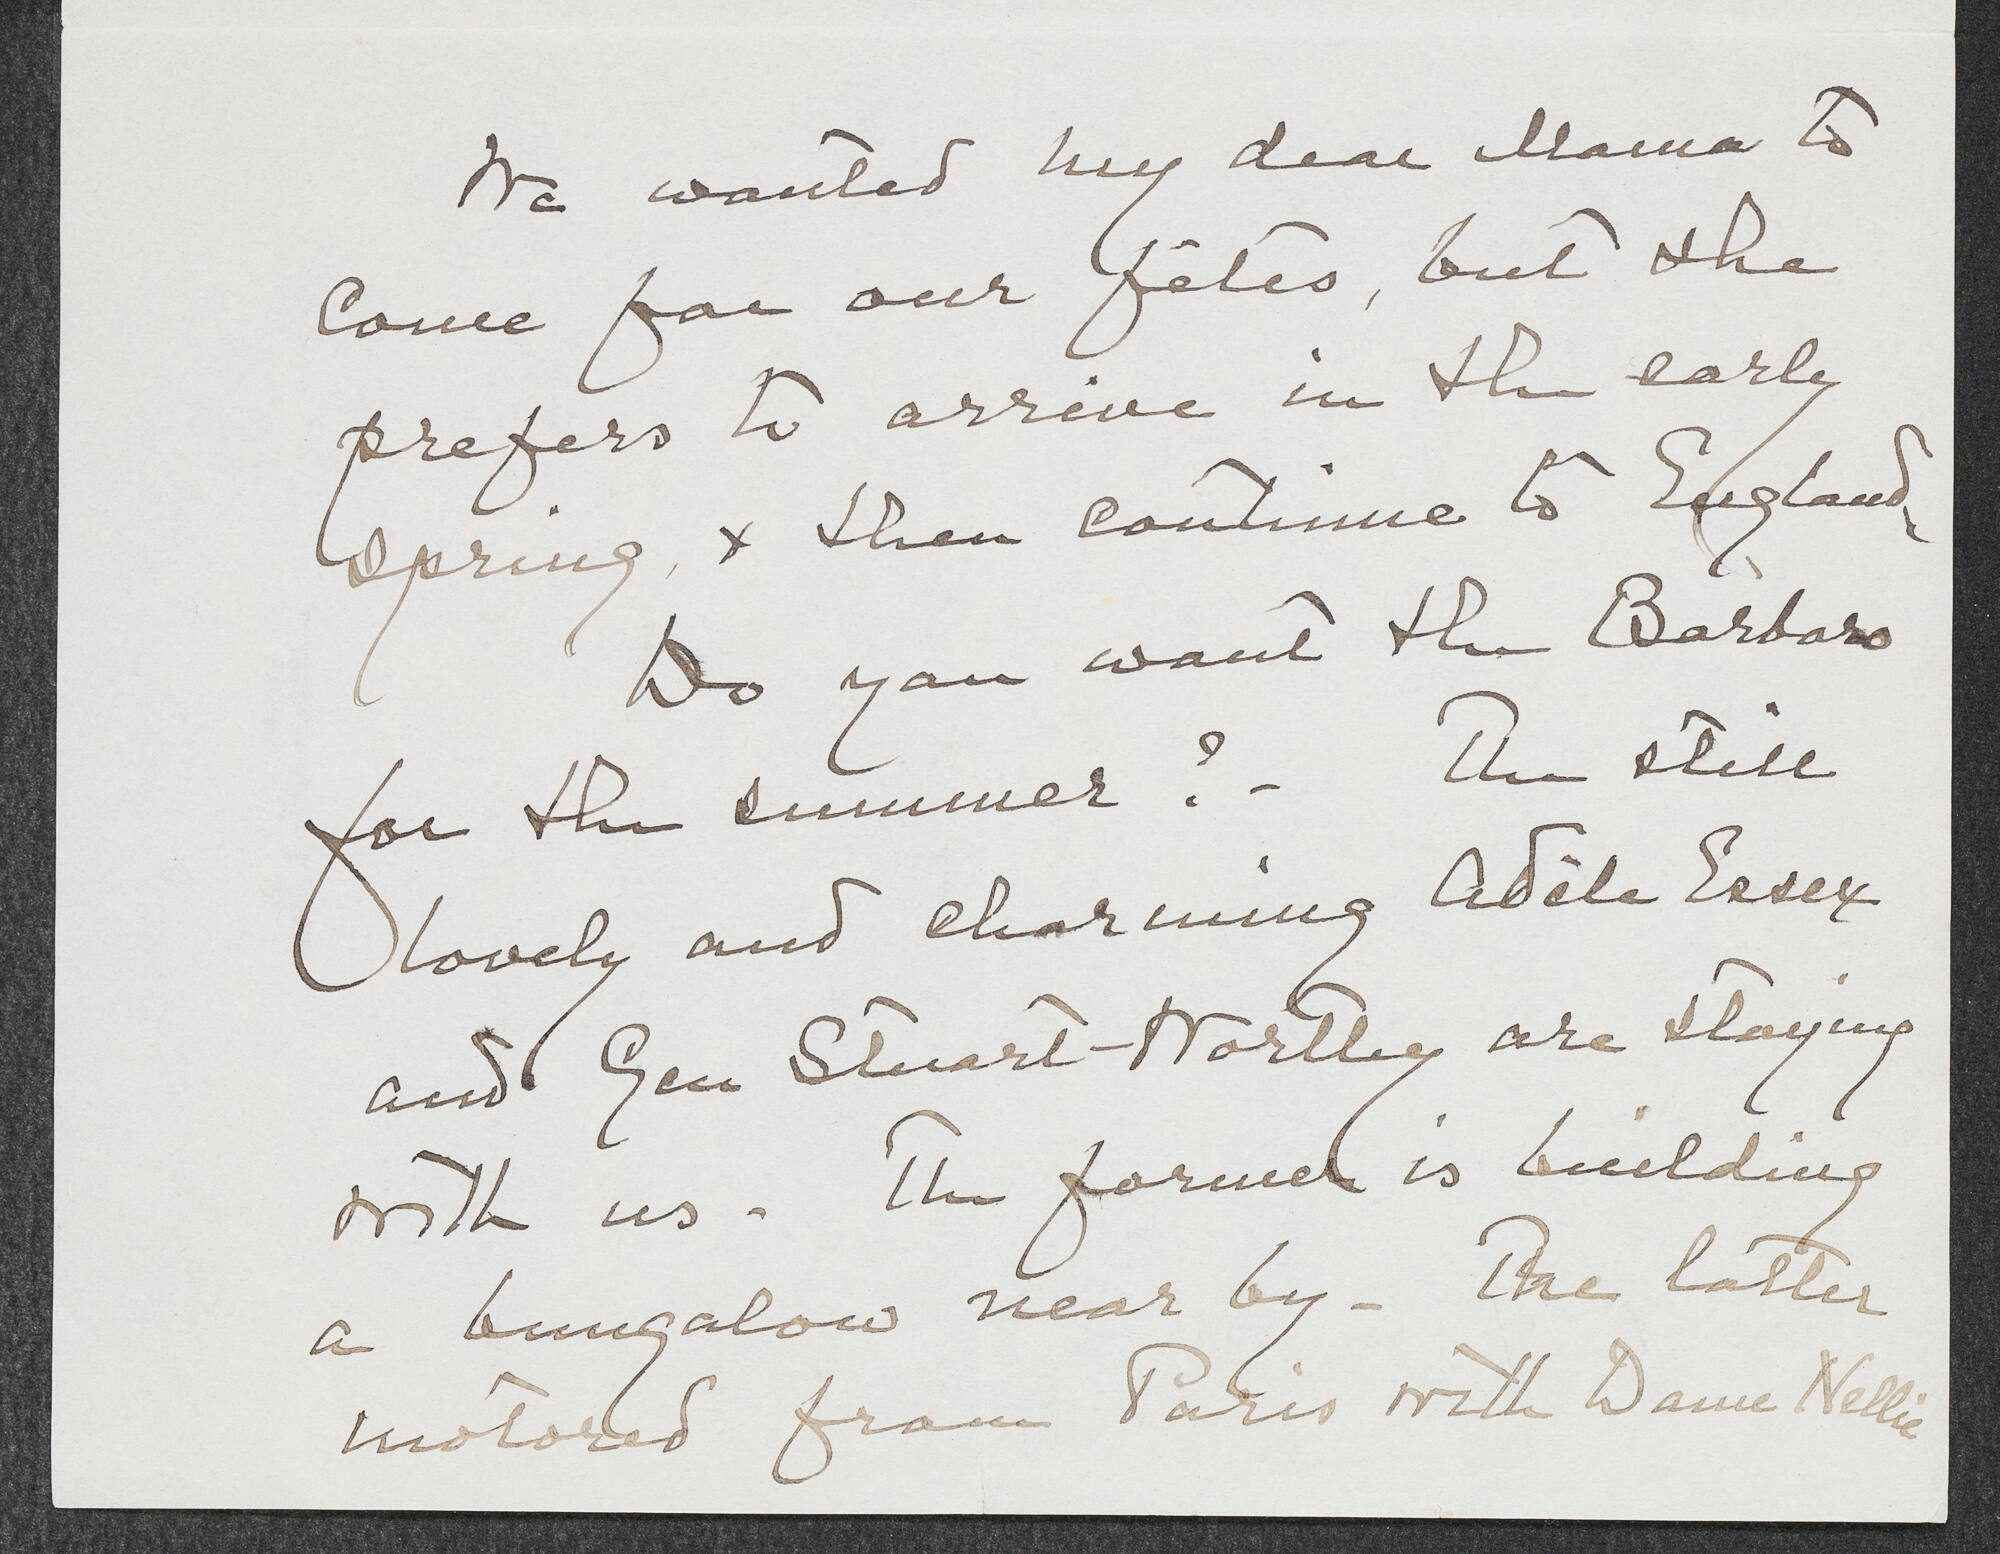 We wanted my dear Mama to
come for our fêtes, but she
prefers to arrive in the early
spring, & then continue to England.
Do you want the Barbaro
for the summer? - The still
lovely and charming Adèle Essex
and Gen Stuart-Wortley are staying
with us. The former is building
a bungalow near by - The latter
motored from Paris with Dame Nellie